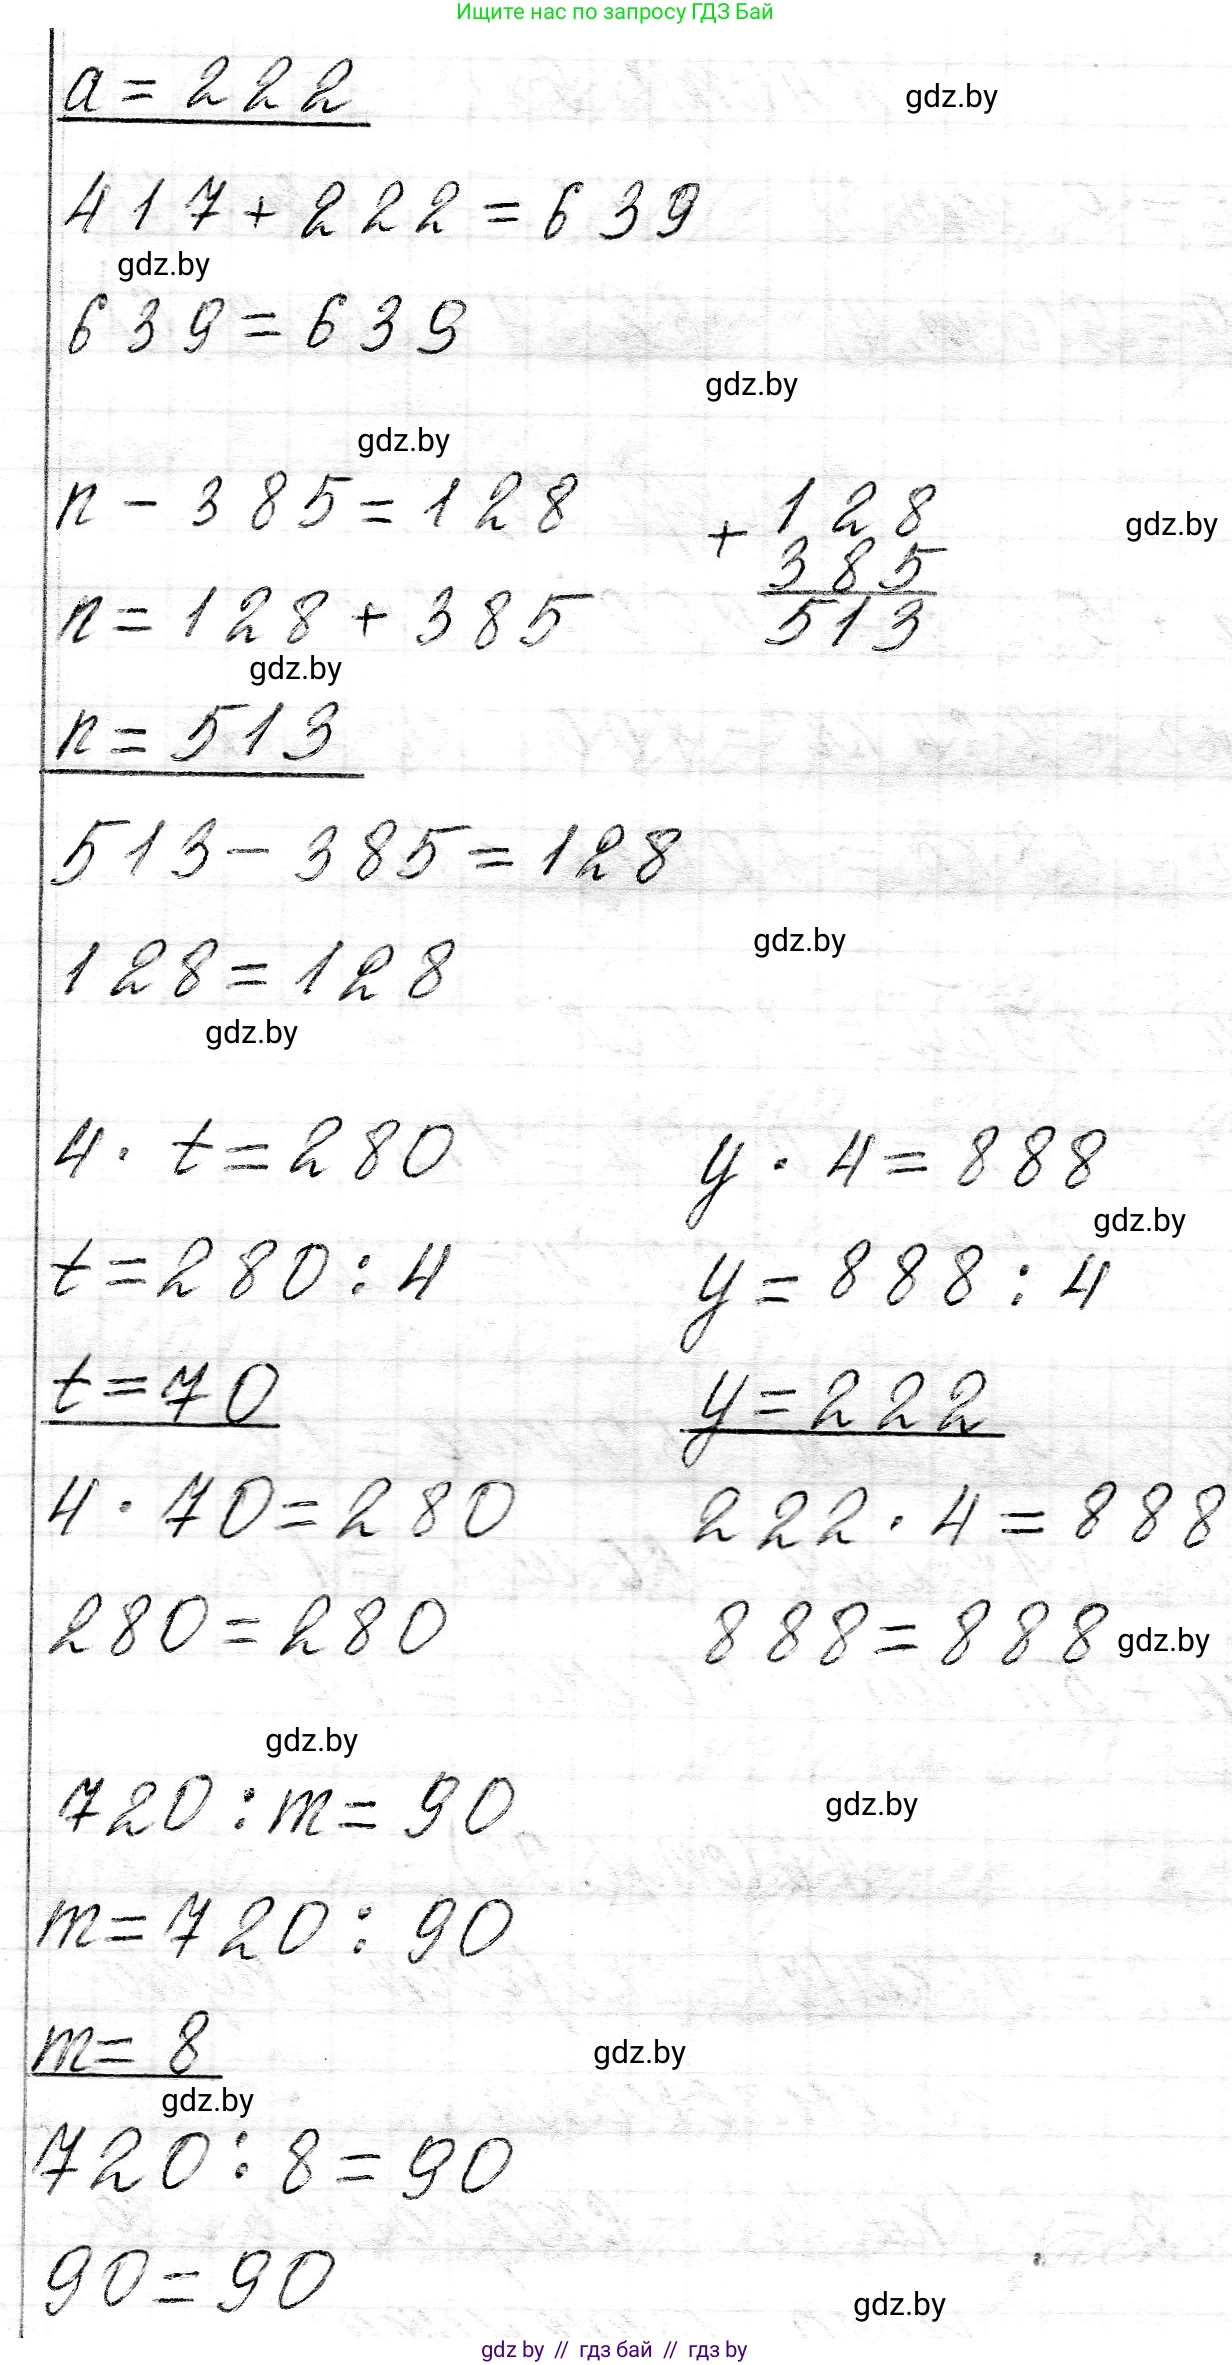 Ищите нас по запросу ГДЗ Бай
a = 222
gdz.by
417 + 222 = 639
gdz.by
639 = 639
gdz.by
gdz.by
n - 385 = 128
+ 128
gdz.by
385
n = 128 + 385
513
gdz.by
n = 513
513 - 385 = 128
128 = 128
gdz.by
gdz.by
4 · t = 280
y · 4 = 888
gdz.by
t = 280 : 4
y = 888 : 4
t = 70
y = 222
4 · 70 = 280
222 · 4 = 888
280 = 280
888 = 888
gdz.by
gdz.by
720 : m = 90
gdz.by
m = 720 : 90
m = 8
gdz.by
gdz.by
720 : 8 = 90
90 = 90
gdz.by
gdz by // гдз бай // гдз by